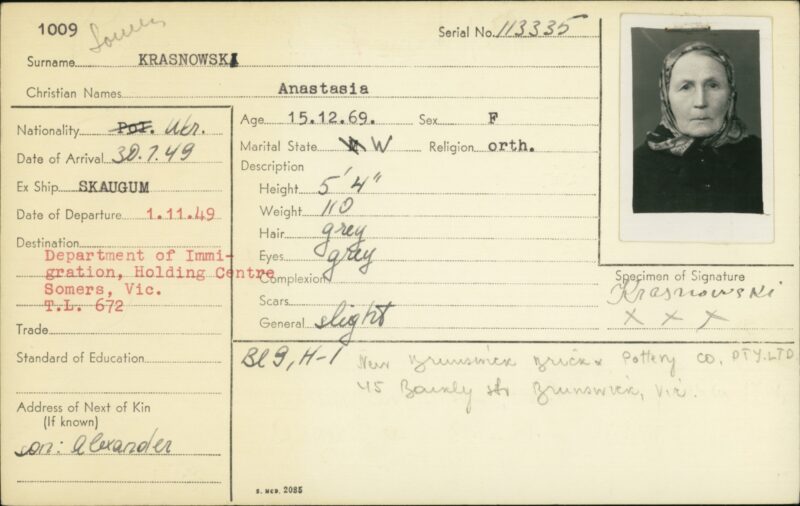 1009 Somers
Serial No. 113335
Surname KRASNOWSKI
Christian Names Anastasia
Nationality Pol. Ukr.
Date of Arrival 30.7.49
Ex Ship SKAUGUM
Date of Departure 1.11.49
Destination
Department of Immi-
gration, Holding Centre
Somers, Vic.
T.L. 672
Trade
Standard of Education
Address of Next of Kin
(If known)
son: Alexander
Age 15.12.69. Sex F
Marital State W Religion orth.
Description
Height 5' 4"
Weight 110
Hair grey
Eyes grey
Complexion
Scars
General slight
Specimen of Signature
Krasnowski
x x x
Bl 9, H-1 New Brunswick Brick & Pottery CO. PTY. LTD
45 Str Brunswick, Vic.
S. MCD. 2085